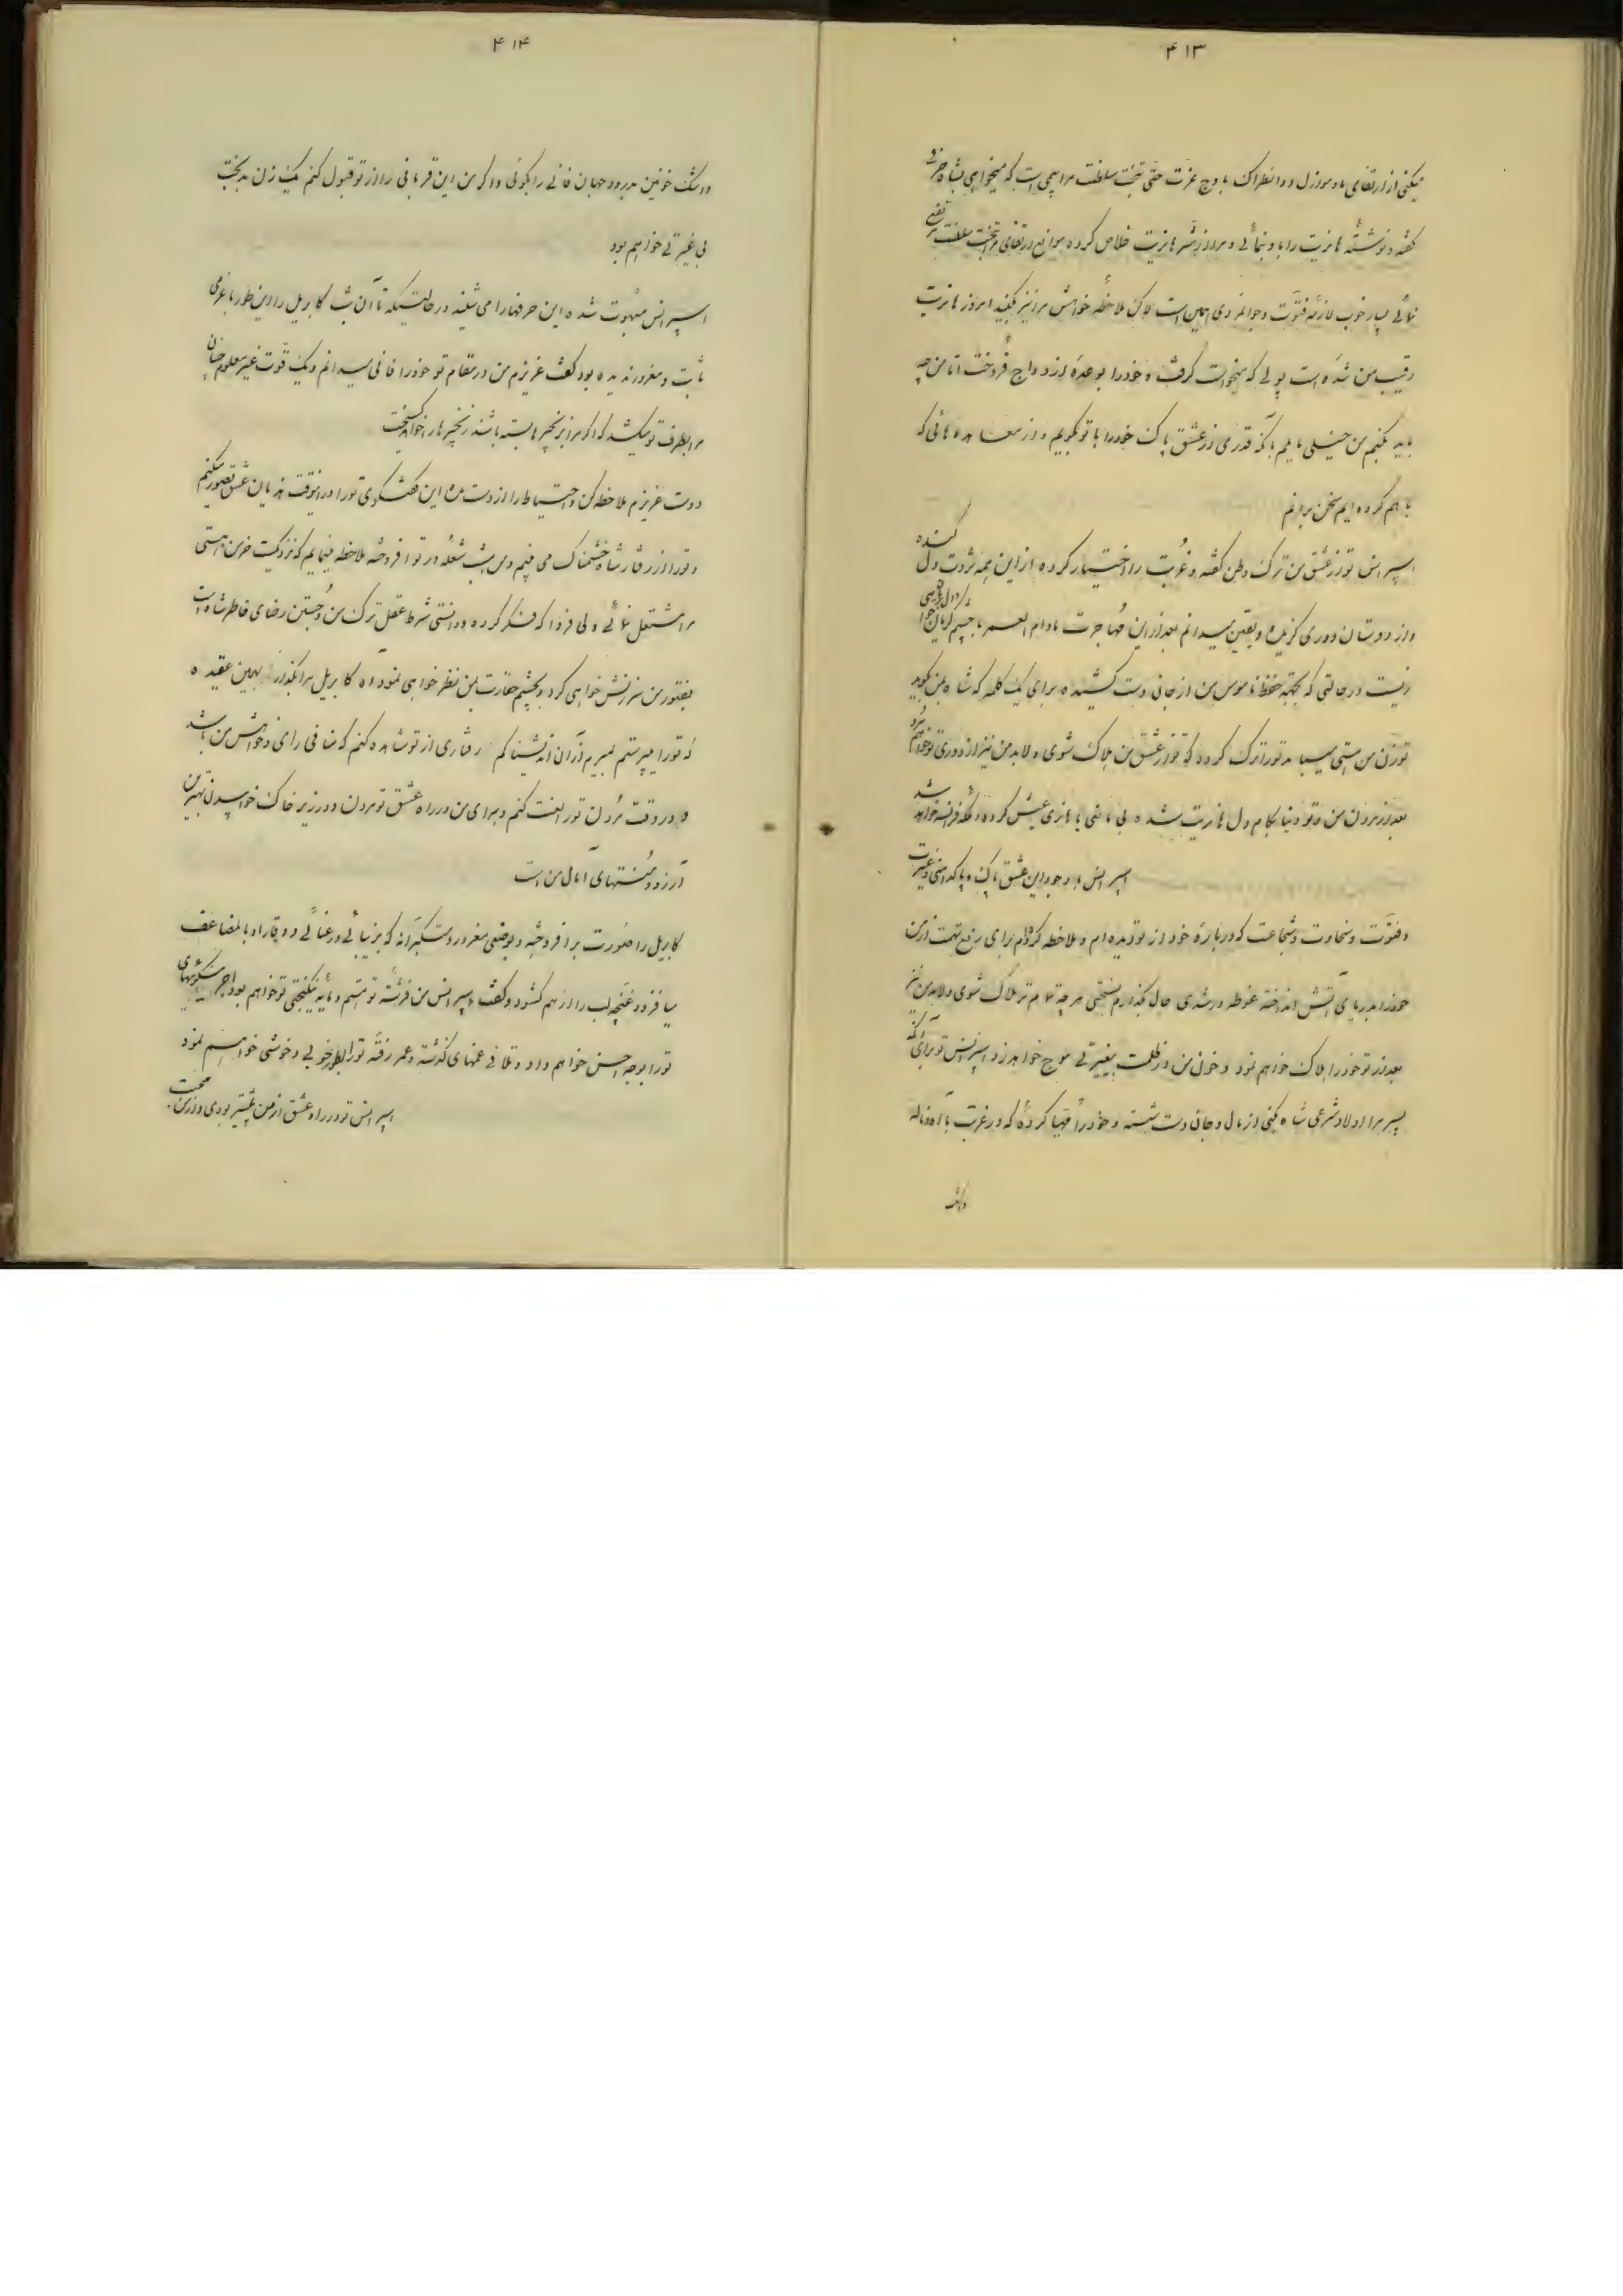 ۴۱۳
میکنی از ارتقای مادموازل دوانطراک باوج عزت حتی تخت سلطنت مرا بیمی است که میخواهی بشاه حرف
گفته و نوشته هانریت را باو بنمائی و مرا از شر هانریت خلاص کرده موانع ارتقای مرا بتخت سلطنت رفع
نمائی بسیار خوب لازمه فتوت و جوانمردی همین است لاکن ملاحظه خواهش مرا نیز بکنید امروز هانریت
رقیب من شده است پولی که میخواست گرفت و خود را بوعده ازدواج فروخت اما من چه
باید بکنم من خیلی مایلم بآنکه قدری از عشق پاک خود را با تو بگویم و از معاهده هائی که
با هم کرده ایم سخن برانم
اسپرانس تو از عشق من ترک وطن گفته و غربت را اختیار کرده از این همه ثروت دل کنده
و از دوستان دوری گزیده و یقین میدانم بعد از این مهاجرت مادام العمر با چشم گریان و دل بریان خواهی
زیست در حالتی که بجهة حفظ ناموس من از جان دست کشیده برای یک کلمه که شاه بمن بگوید
تو زن من هستی میباید تو را ترک کرده که تو از عشق من هلاک شوی و لابد من نیز از دوری تو خواهم مرد
بعد از مردن من و تو دنیا بکام دل هانریت شده بی مانعی با هانری عیش کرده ملکه فرانسه خواهد شد
اسپرانس با وجود این عشق پاک و پاکدامنی و غیرت
و فتوت و سخاوت و شجاعت که درباره خود از تو دیده ام و ملاحظه کرده ام برای رفع تهمت از من
خود را بدریای آتش انداخته غوطه ور شدی حال بگذارم بسختی هر چه تمام تر هلاک شوی و لابد من نیز
بعد از تو خود را هلاک خواهم نمود و خون من در ظلمت بیغیرتی موج خواهد زد اسپرانس تو برای آنکه
پسر مرا اولاد شرعی شاه کنی از مال و جان دست شسته و خود را مهیا کرده که در غربت با آه و ناله
و اشک
۴۱۴
و اشک خونین بدرود جهان فانی را بگوئی و اگر من این قربانی را از تو قبول کنم یک زن بدبخت
بی غیرتی خواهم بود
اسپرانس مبهوت شده این حرفها را می شنید در حالتیکه تا آن شب کابریل را این طور با عزمی
ثابت و مغرور ندیده بود گفت عزیزم من در مقام تو خود را فانی میدانم و یک قوت غیر معلوم چنان
مرا بطرف تو میکشد که اگر مرا بزنجیرها بسته باشند زنجیرها را خواهم گسیخت
دوست عزیزم ملاحظه کن و احتیاط را از دست مده این گفتگوی تو را در اینوقت هذیان عشق تصور میکنم
و تو را از رفتار شاه خشمناک می بینم و من شب شعله در تو افروخته ملاحظه مینمایم که نزدیکست خرمن هستی
مرا مشتعل نمائی ولی فردا که فکر کرده و دانستی شرط عقل ترک من و جستن رضای خاطر شاه است
بفتور من سرزنش خواهی کرد و بچشم حقارت بمن نظر خواهی نمود آه کابریل مرا بگذار بهمین عقیده
که تو را میپرستم بمیرم از آن اندیشناکم رفتاری از تو مشاهده کنم که منافی رای و خواهش من باشد
و در وقت مردن تو را لعنت کنم و برای من در راه عشق تو مردن و در زیر خاک خوابیدن بهترین
آرزو و منتهای آمال من است
کابریل را صورت برافروخته و بوضعی مغرور و متکبرانه که بزیبائی و رعنائی و وقار او بالمضاعف
میافزود غنچه لب را از هم گشود و گفت اسپرانس من فرشته تو هستم و مایه نیکبختی تو خواهم بود اجر نیکوئیهای
تو را بوجه احسن خواهم داد و تلافی غمهای گذشته و عمر رفته تو را بطور خوبی و خوشی خواهم نمود
اسپرانس تو در راه عشق از من پیشتر بودی و از من محبت